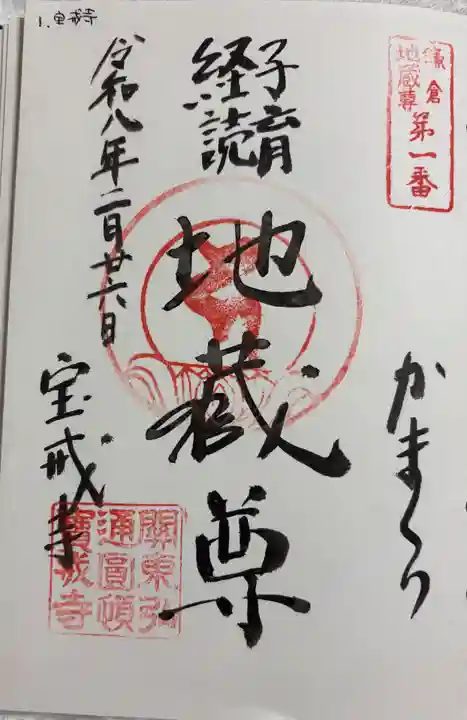 1.宝戒寺
鎌倉
地蔵尊
第一番
かまくら
子育
経読
地蔵尊
令和八年二月廿六日
宝戒寺
關東弘
通圓頓
寶戒寺